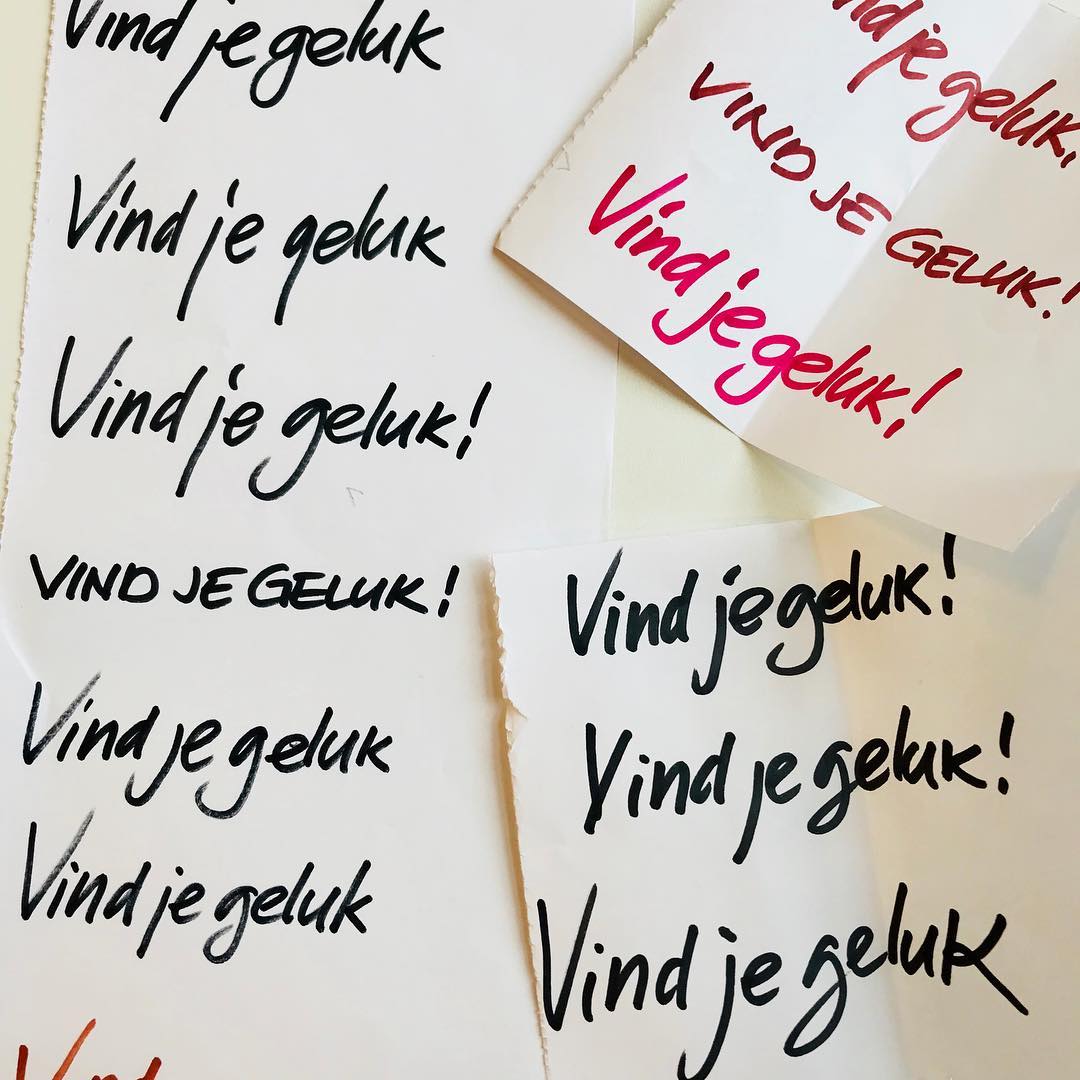 Vind je geluk
Vind je geluk
Vind je geluk!
VIND JE GELUK!
Vind je geluk
Vind je geluk
je geluk!
VIND JE GELUK!
Vind je geluk!
Vind je geluk!
Vind je geluk!
Vind je geluk